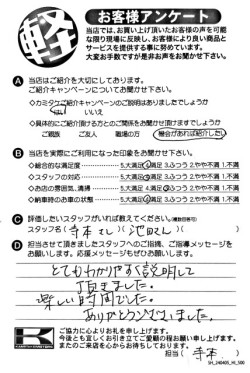 軽
お客様アンケート
当店では、お買い上げ頂いたお客様の声を可能
な限り現場に反映し、お客様により良い商品と
サービスを提供する事に努めています。
大変お手数ですが是非お声をお聞かせ下さい。
A 当店はご紹介を大切にしております。
ご紹介キャンペーンについてお聞かせ下さい。
○カミタケご紹介キャンペーンのご説明はありましたでしょうか
はい いいえ
○具体的にご紹介頂ける方とのご関係をお聞かせ頂けますでしょうか
ご親族 ご友人 職場の方 機会があれば紹介したい
B 当店を実際にご利用になった印象をお聞かせ下さい。
○総合的な満足度 5.大満足 4.満足 3.ふつう 2.やや不満 1.不満
○スタッフの対応 5.大満足 4.満足 3.ふつう 2.やや不満 1.不満
○お店の雰囲気、清掃 5.大満足 4.満足 3.ふつう 2.やや不満 1.不満
○納車時のお車の状態 5.大満足 4.満足 3.ふつう 2.やや不満 1.不満
C 評価したいスタッフがいれば教えてください。(複数回答可)
スタッフ名( 寺本さん )( 池田さん )
D 担当させて頂きましたスタッフへのご指摘、ご指導メッセージを
お願いします。応援メッセージもぜひお願いします。
とてもわかりやすく説明して
頂きました。
楽しい時間でした。
ありがとうございました。
ご協力に心よりお礼を申し上げます。
今後とも宜しくお引き立てご愛顧の程お願い申し上げます。
またのご来店を心からお待ちしております。
担当( 寺本 )